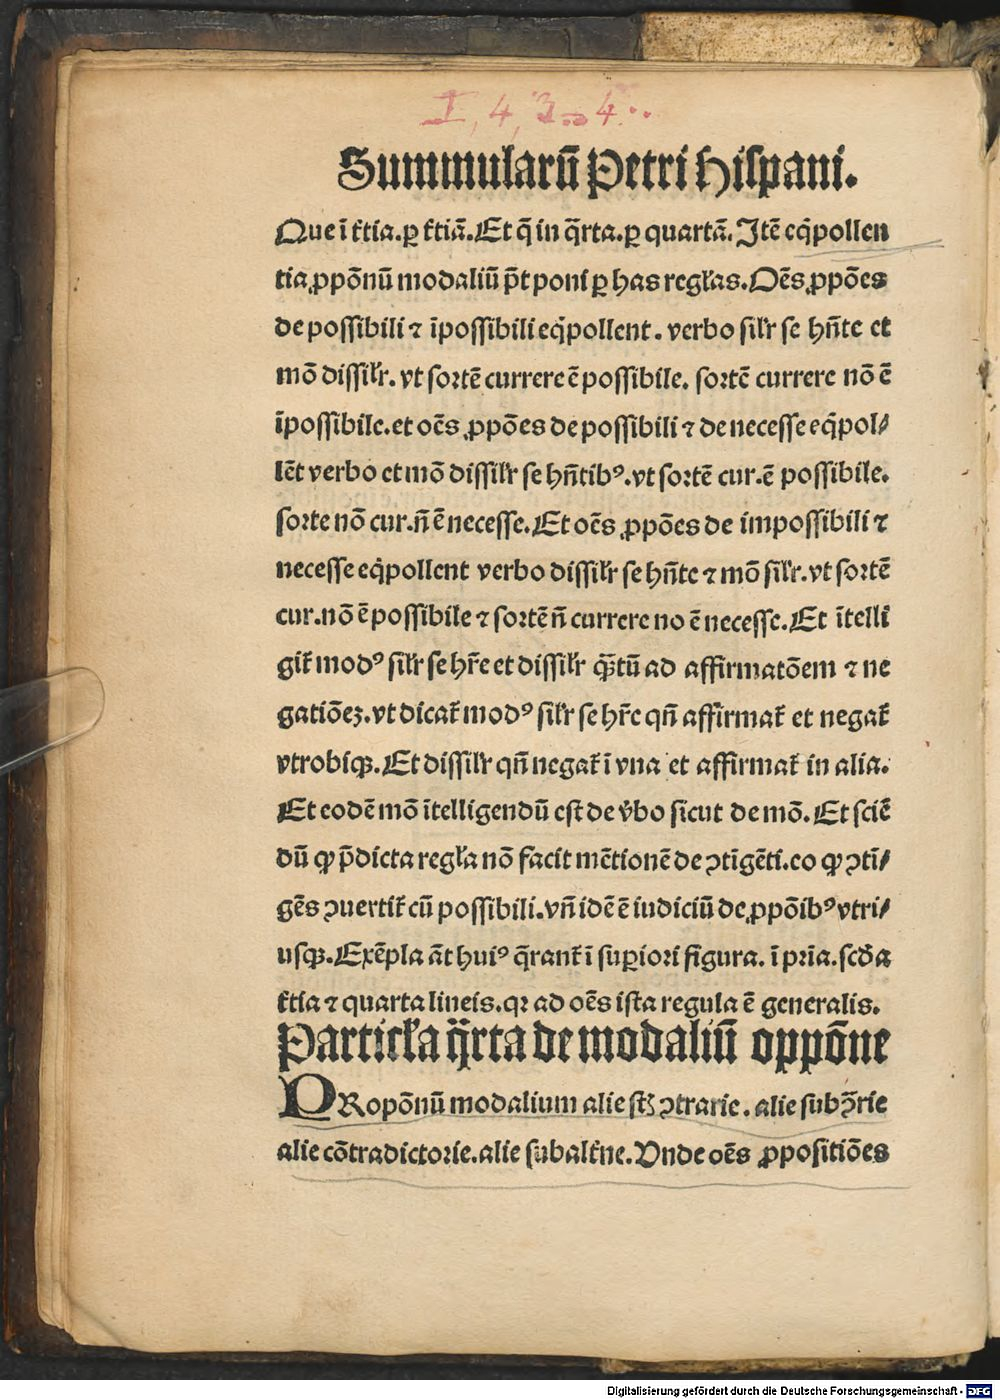 I, 4, 3 = 4..
Summularū Petri Hispani.
Que ī t̄tia. ꝑ t̄tiā. Et q̄ in q̄rta. ꝑ quartā. Itē eq̄pollen
tia ꝓpōnū modaliū p̄t poni ꝑ has regl̄as. Oēs ꝓpōes
de possibili ⁊ īpossibili eq̄pollent. verbo sil̄r se hn̄te et
mō dissil̄r. vt sortē currere ē possibile. sortē currere nō ē
īpossibile. et oēs ꝓpōes de possibili ⁊ de necesse eq̄pol⸗
lēt verbo et mō dissil̄r se hn̄tibꝰ. vt sortē cur. ē possibile.
sorte nō cur. n̄ ē necesse. Et oēs ꝓpōes de impossibili ⁊
necesse eq̄pollent verbo dissil̄r se hn̄te ⁊ mō sil̄r. vt sortē
cur. nō ē possibile ⁊ sortē n̄ currere no ē necesse. Et ītelli
git̄ modꝰ sil̄r se hr̄e et dissil̄r q̄tū ad affirmatōem ⁊ ne
gatiōeꝫ. vt dicat̄ modꝰ sil̄r se hr̄e qn̄ affirmat̄ et negat̄
vtrobiqꝫ. Et dissil̄r qn̄ negat̄ ī vna et affirmat̄ in alia.
Et eodē mō ītelligendū est de v̄bo sicut de mō. Et sciē
dū ꝙ p̄dicta regl̄a nō facit mētionē de ꝯtīgēti. eo ꝙ ꝯtī⸗
gēs ꝯuertit̄ cū possibili. vn̄ idē ē iudiciū de ꝓpōibꝰ vtri⸗
usqꝫ. Exēpla āt huiꝰ q̄rant̄ ī suꝑiori figura. ī pr̄ia. scd̄a
t̄tia ⁊ quarta lineis. qꝛ ad oēs ista regula ē generalis.
Particl̄a q̄rta de modaliū oppōne
PRopōnū modalium alie st̄ ꝯtrarie. alie subꝯ̄rie
alie cōtradictorie. alie subalt̄ne. Vnde oēs ꝓpositiōes
Digitalisierung gefördert durch die Deutsche Forschungsgemeinschaft - DFG